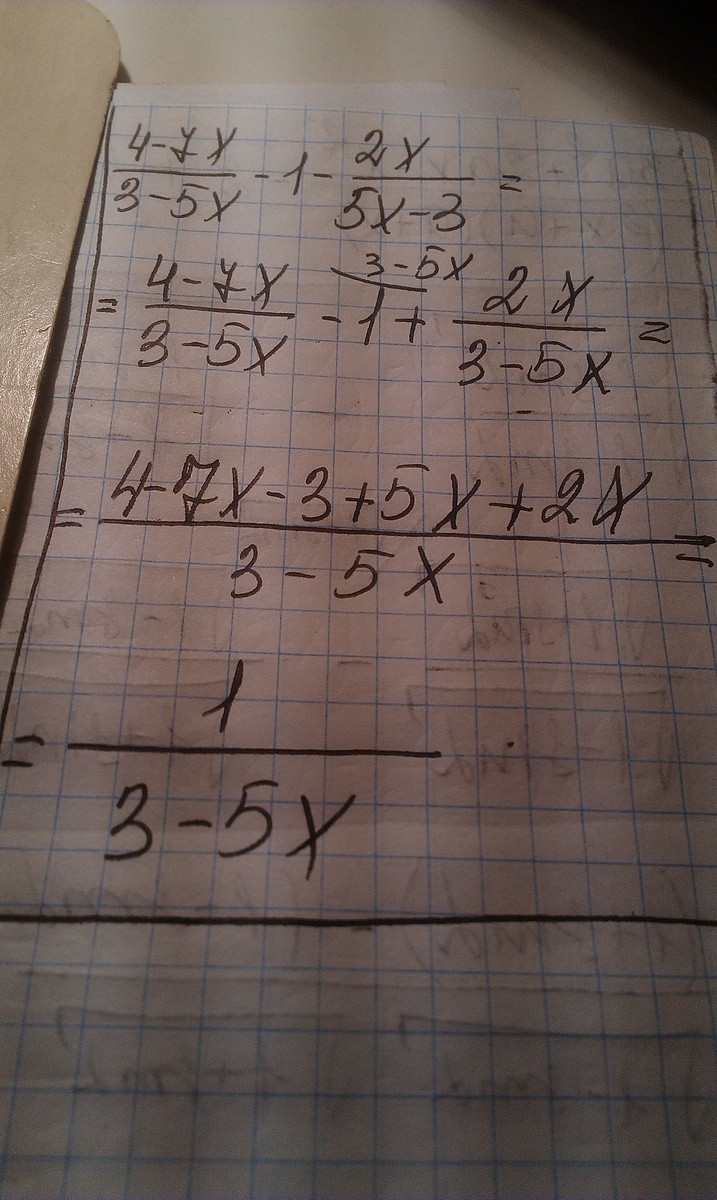 4-7x/3-5x - 1 - 2x/5x-3 =
= 4-7x/3-5x - 1 (3-5x) + 2x/3-5x =
= 4-7x-3+5x+2x/3-5x =
= 1/3-5x